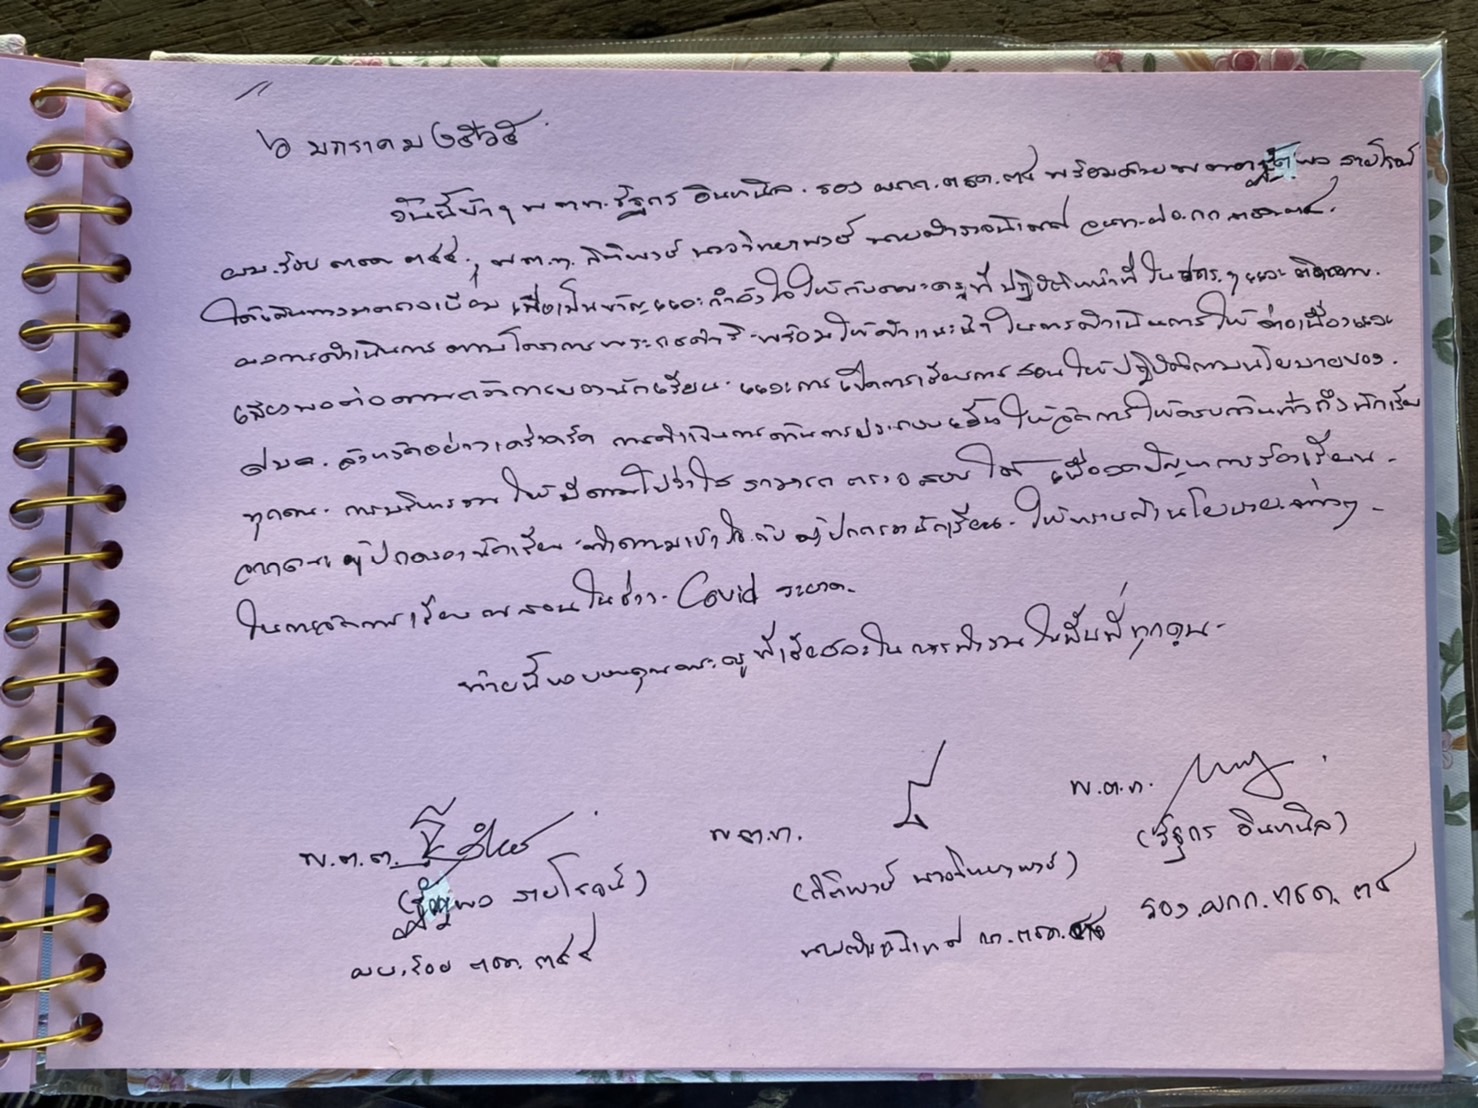 ๖ มกราคม ๒๕๖๕
วันนี้ข้าฯ พ.ต.ท. รัฐกร อินทนิล รอง ผกก.ตชด.๓๔ พร้อมด้วย พ.ต.ต. รายโรจน์
ผบ.ร้อย ตชด.๓๔๔, พ.ต.ท. สิทิพงษ์ นายตำรวจนิเทศ
ได้เดินทางมาตรวจเยี่ยม เพื่อเป็นขวัญและกำลังใจให้กับคณะครูที่ปฏิบัติหน้าที่ใน ศกร.ฯ และติดตาม
ผลการดำเนินการ ตามโครงการพระราชดำริ พร้อมให้คำแนะนำในการดำเนินการให้ต่อเนื่องและ
เพียงพอต่อความต้องการของนักเรียน และการเปิดการเรียนการสอนให้ปฏิบัติตามนโยบายของ
ศบค. จังหวัดอย่างเคร่งครัด การดำเนินการด้านการประกอบเลี้ยงให้จัดการให้ครบถ้วนทั่วถึงนักเรียน
ทุกคน การบริหารงานให้มีความโปร่งใส สามารถตรวจสอบได้ เพื่อลดปัญหาการร้องเรียน
จากคณะผู้ปกครองนักเรียน ทำความเข้าใจกับผู้ปกครองนักเรียน ให้ทราบถึงนโยบายต่างๆ
ในการจัดการเรียนการสอนในช่วง Covid ระบาด
ท้ายนี้ขอขอบคุณคณะครูที่เสียสละในการทำงานในพื้นที่ทุกคน
พ.ต.ต.
พ.ต.ท.
พ.ต.ท.
(รายโรจน์)
(สิทิพงษ์)
(รัฐกร อินทนิล)
ผบ.ร้อย ตชด.๓๔๔
นายตำรวจนิเทศ ตชด.
รอง ผกก.ตชด.๓๔